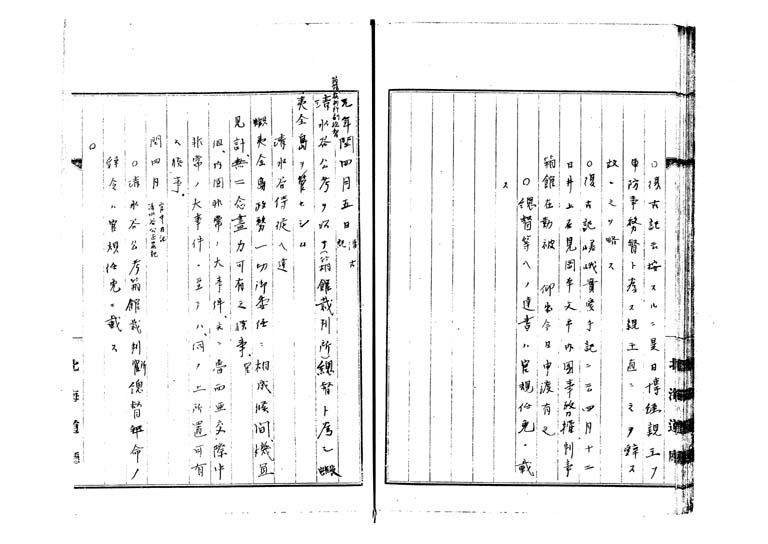 ○復古記云按スルニ是日博経親王ヲ
申防事務督ト為ス親王直ニ之ヲ辞ス
故ニ之ヲ略ス
○復古記嵯峨實愛手記ニ云四月十二
日井上石見岡本文平内国事務権判事
箱館在勤被 仰出今日申渡有之
○総督等ヘノ達書ハ官規任免ニ載
ス
元年閏四月五日 復古記
清水谷公考ヲ以テ(箱館裁判所)総督ト為シ蝦
夷全島ヲ管セシム
清水谷侍従ヘ達
蝦夷全島政務一切御委任ニ相成候間機宜
見計無二念盡力可有之候事
但内国非常ノ大事件又ハ魯西亜交際中
非常ノ大事件ニ至リテハ伺ノ上所置可有
之候事
閏四月
○清水谷公考箱館裁判所総督拝命ノ
辞令ハ官規任免ニ載ス
○
北海道廳